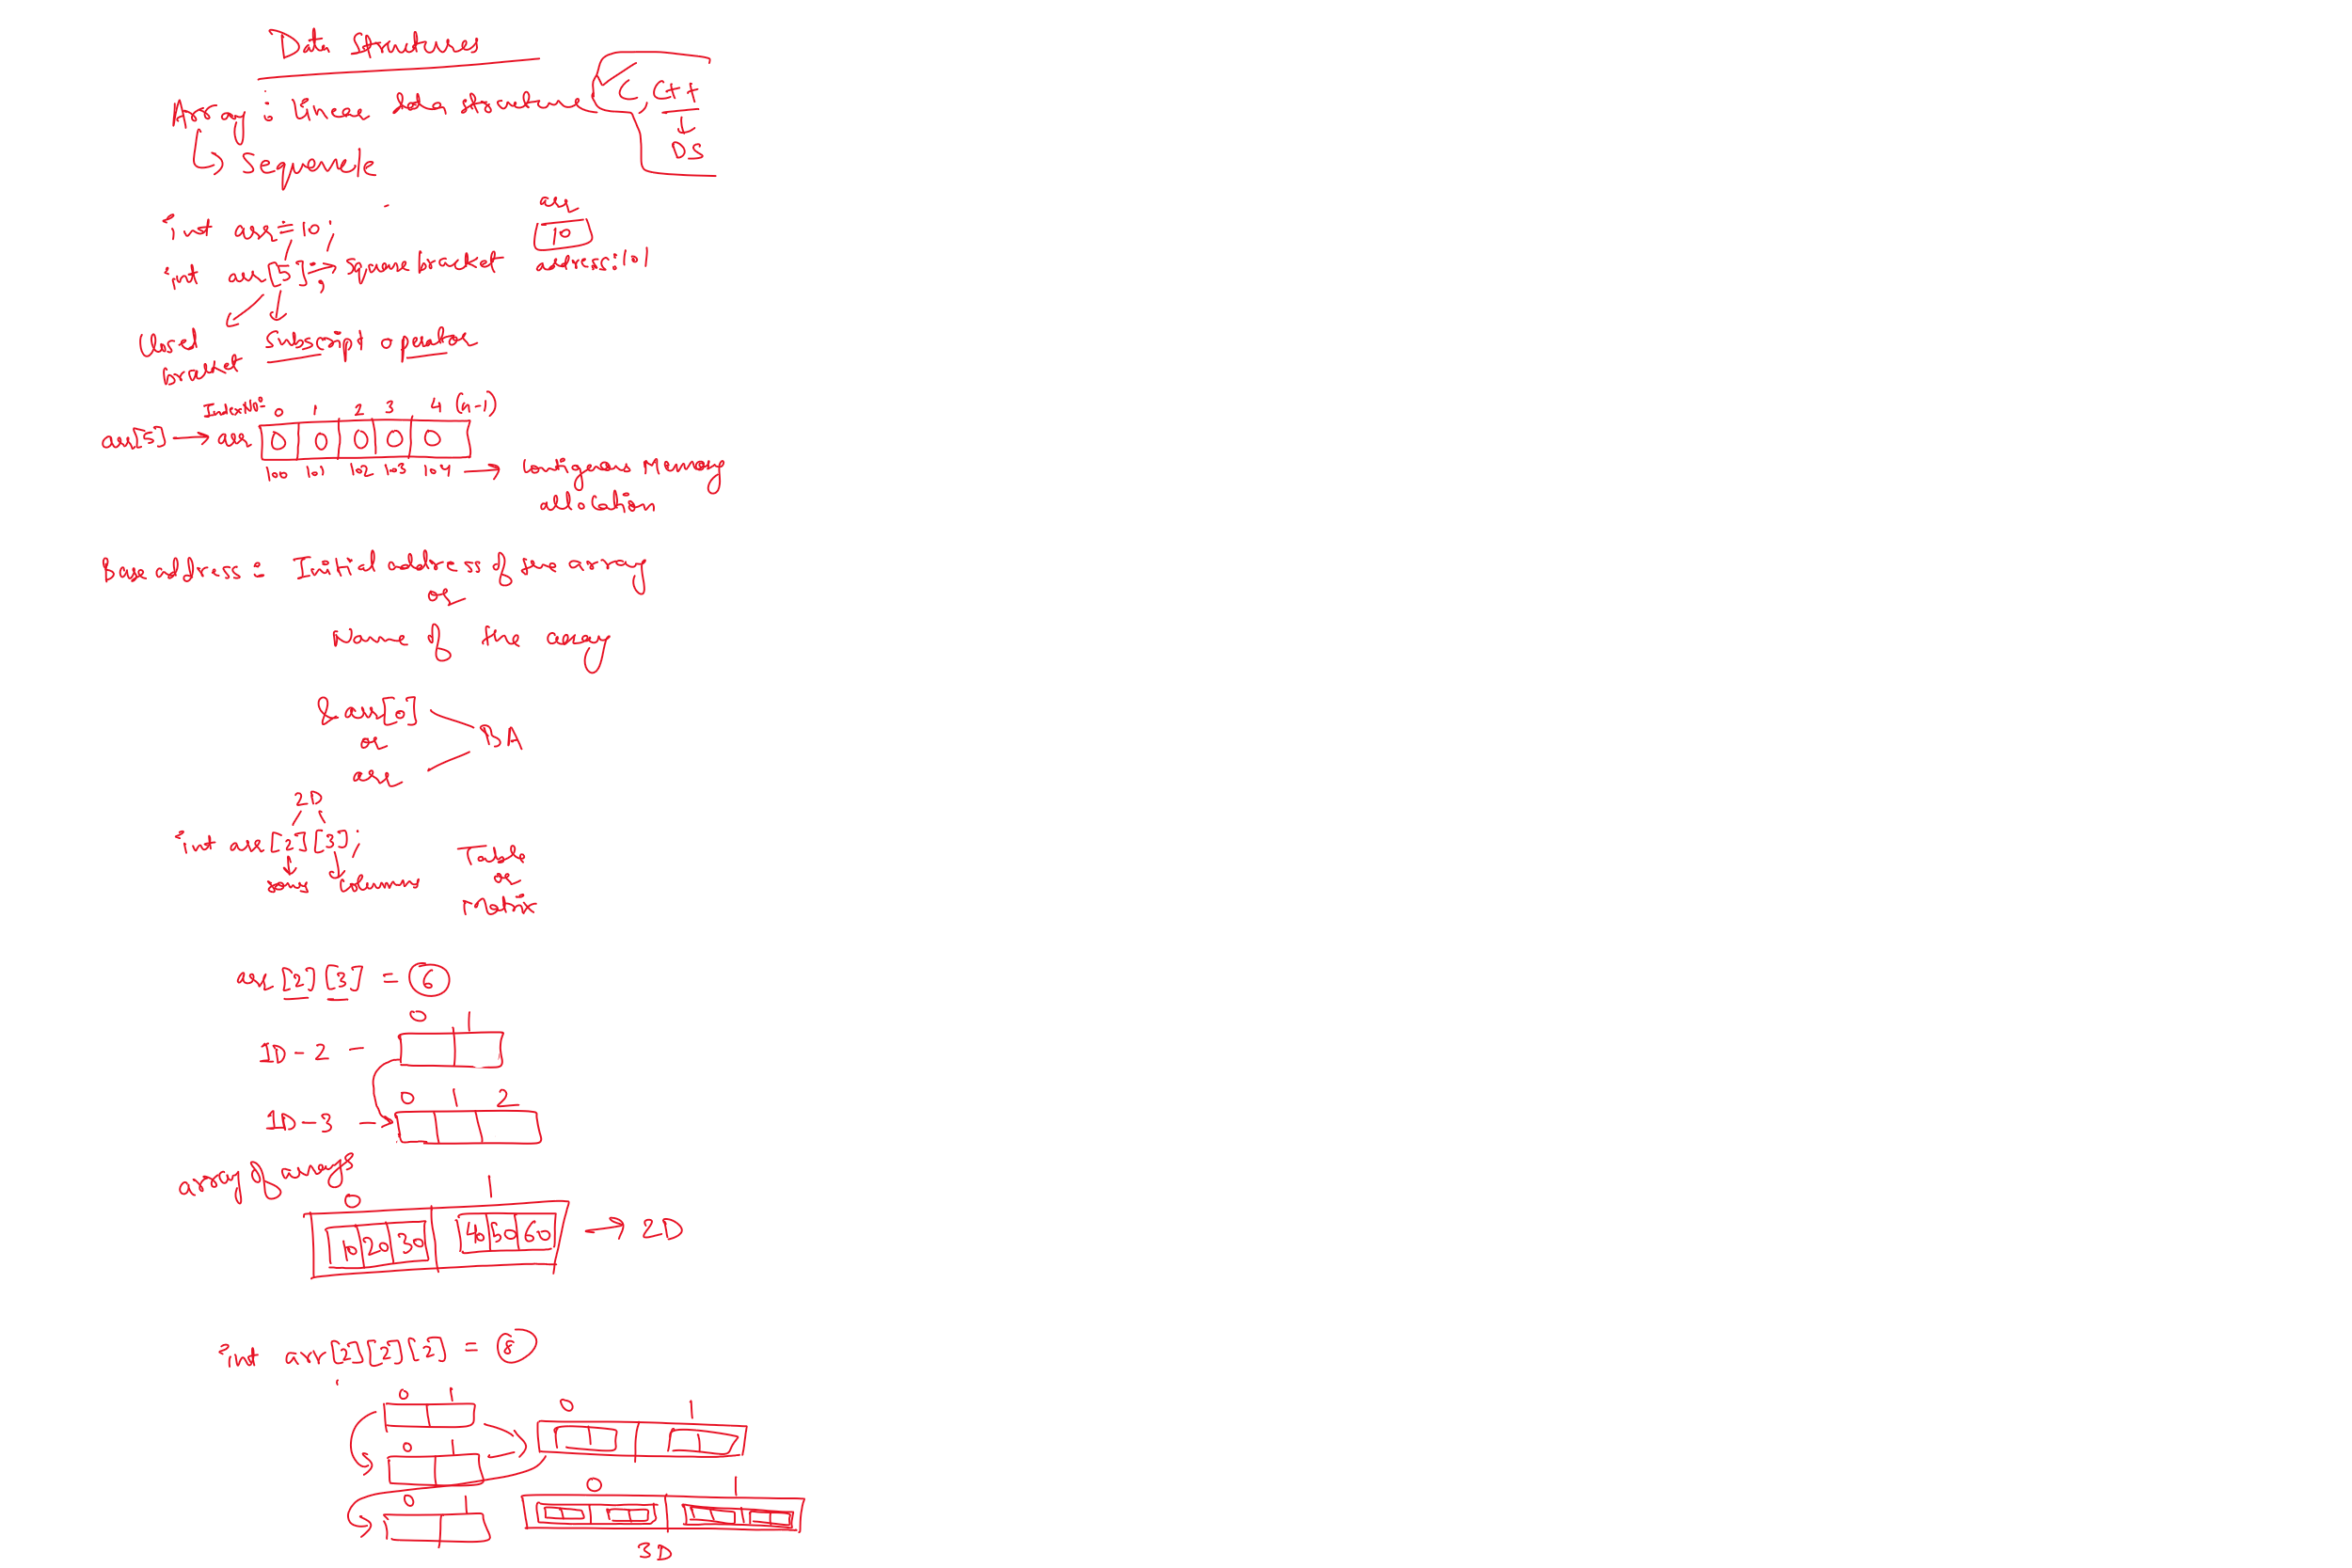 Data Structures
Array : linear data structure
C, C++
DS
Sequence
int arr = 10;
arr
10
address: 101
int arr[5]; → square bracket
Closed bracket
Subscript operator
Index No: 0 1 2 3 4 (n-1)
arr[5] → arr 0 0 0 0 0
100 101 102 103 104 → Contigeous Memory
allocation
Base address : Initial address of the array
or
Name of the array
&arr[0]
or
arr
BA
2D
int arr[2][3];
rows columns
Table
or
Matrix
arr[2][3] = 6
0 1
1D - 2 -
0 1 2
1D - 3 →
array of arrays
0 1
10 20 30 40 50 60 → 2D
int arr[2][2][2] = 8
0 1
0 1
0 1
0 1
0 1
3D